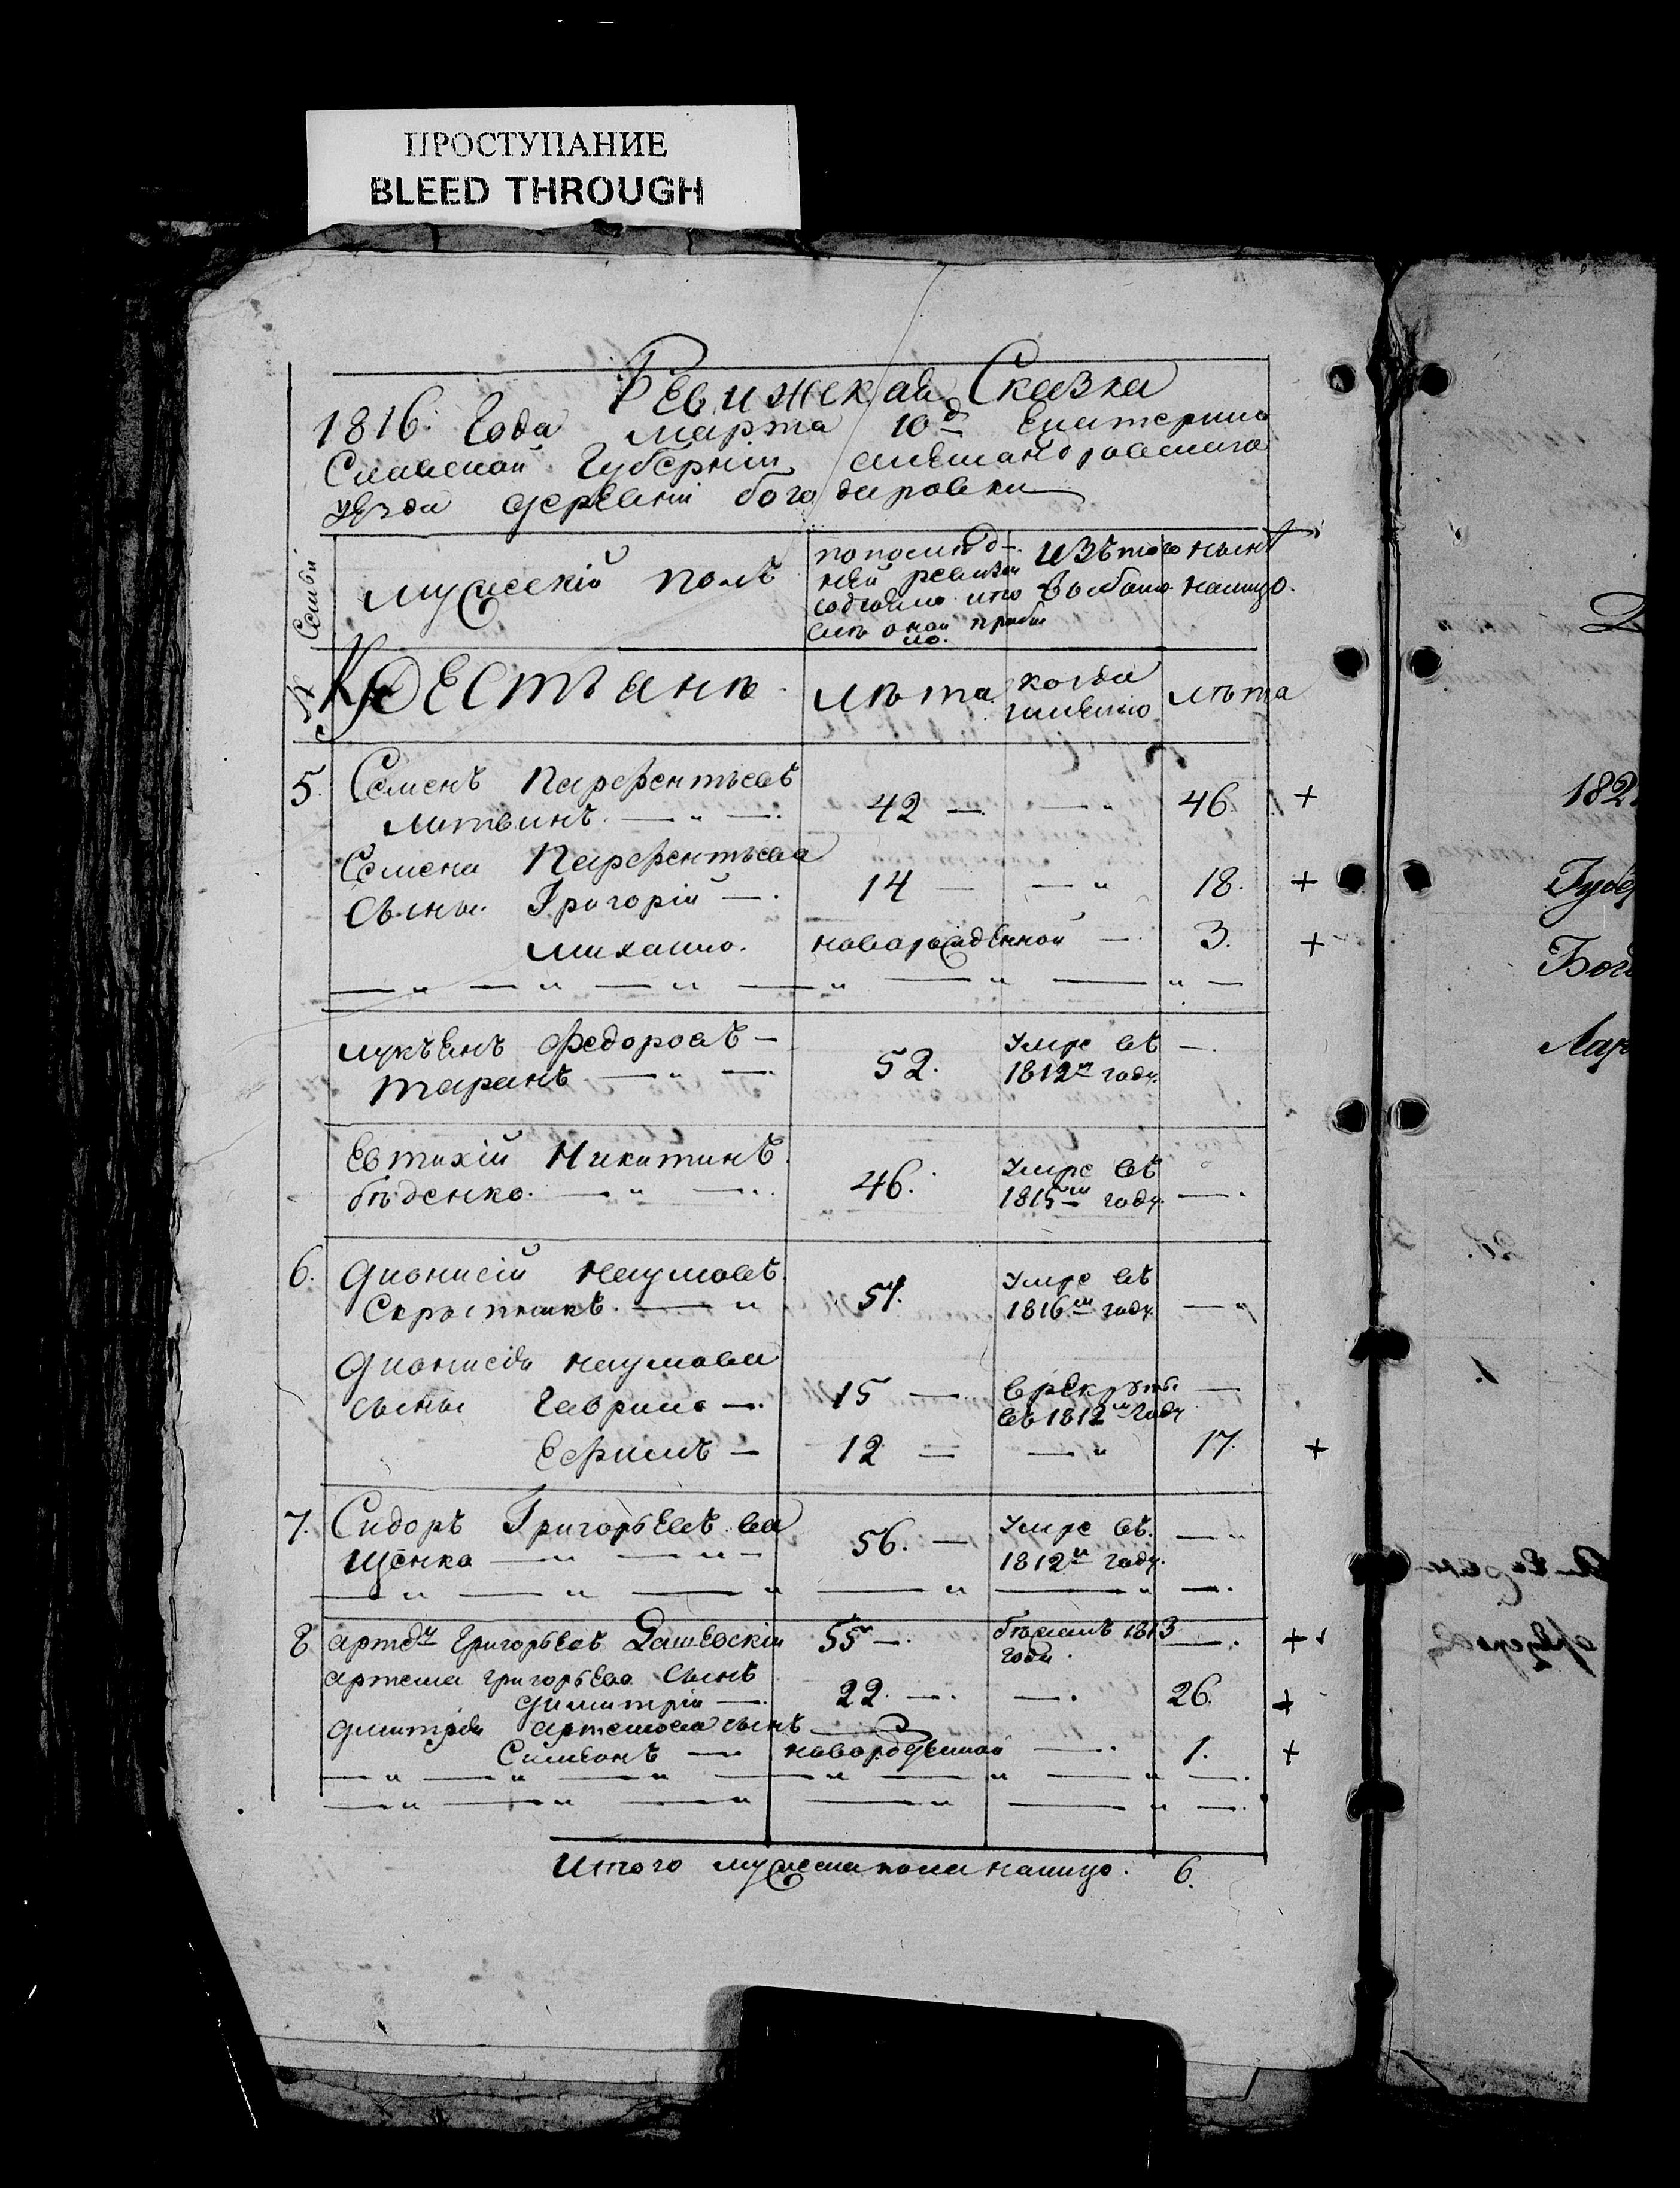 ПРОСТУПАНИЕ
BLEED THROUGH
Ревижская Сказка
1816. Года марта 10д Екатерино
Славской Губерніи александровскаго
уезда деревни богодаровки
Семьи
мужескій полъ
попослѣд-
ней ревизіи
состояло ито
слѣ оной прибы
ло.
Изътого
выбыло
нынѣ
налицо.
№
Крестьянѣ
лѣта
когда
имянно
лѣта
5. Семенъ Парфентьевъ
литвинъ. 42 — 46. +
Семена Парфентьева
Сыны. Григорій — 14 — 18. +
михаило. новорожденной — 3. +
лукъянъ Федоровъ —
таранъ 52. Умре въ
1812м году.
Евтихій Никитинъ
бѣденко. 46. Умре въ
1815м году.
6. Дионисій Наумовъ
Скрыпникъ. 51. Умре въ
1816м году.
Дионисія наумова
сыны Гаврило — 15 — врекруты
въ 1812м году
Ефимъ — 12 — 17. +
7. Сидоръ Григорьевъ ва
щенко 56. — Умре въ.
1812м году.
8 Григорьевъ Дашевскій 55 —. бѣжалъ 1813 +
года.
артема григорьева Сынъ
димитрій —. 22. —. 26. +
дмитрія артемова сынъ
Симеонъ — новорожденной —. 1. +
Итого мужеска пола налицо. 6.
182
Губер
Бог
Лар